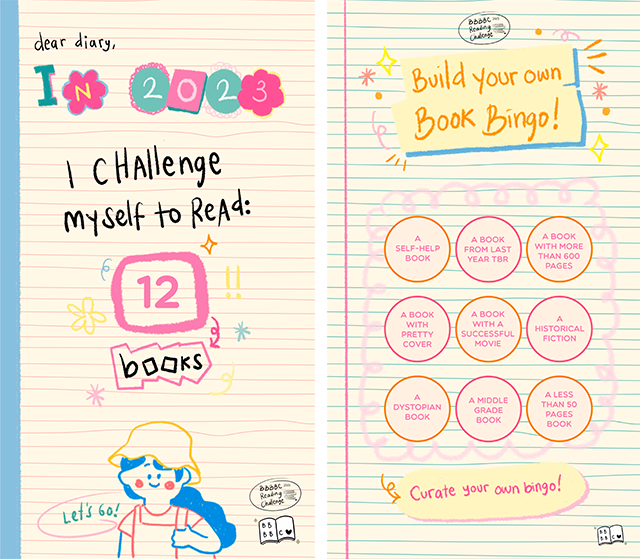 dear diary,
IN 2023
I CHAllenge
myself to ReAd:
12
!!
books
Let's Go!
BBBBC
Reading
Challenge
BB
BBC
BBBBC
Reading
Challenge
Build your own
Book Bingo!
A
SELF-HELP
BOOK
A BOOK
FROM LAST
YEAR TBR
A BOOK
WITH MORE
THAN 600
PAGES
A BOOK
WITH
PRETTY
COVER
A BOOK
WITH A
SUCCESSFUL
MOVIE
A
HISTORICAL
FICTION
A
DYSTOPIAN
BOOK
A MIDDLE
GRADE
BOOK
A LESS
THAN 50
PAGES
BOOK
Curate your own bingo!
BB
BBC